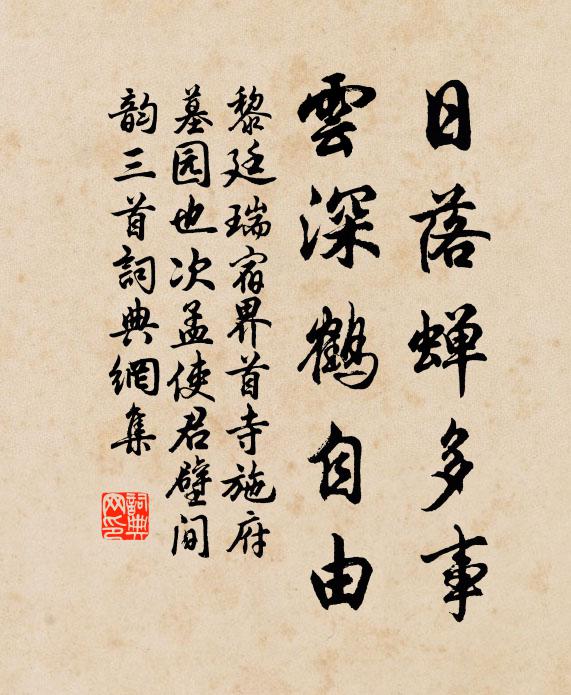 日落蝉多事
雲深鶴自由
黎廷瑞宿界首寺施府
墓园也次孟使君壁间
韵三首詞典網集
詞典网印